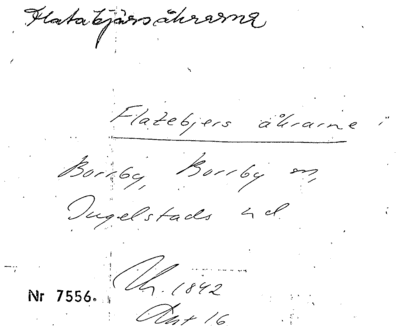 Flatabjärsåkrarna
Flatebjers åkrarne i
Borrby, Borrby sn,
Ingelstads hd
Nr 7556.
1842
Akt 16